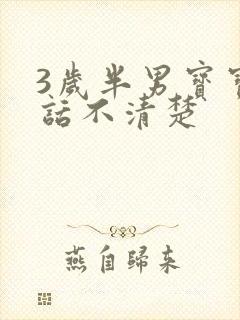 3歲半男寶寶
話不清楚
燕自歸来